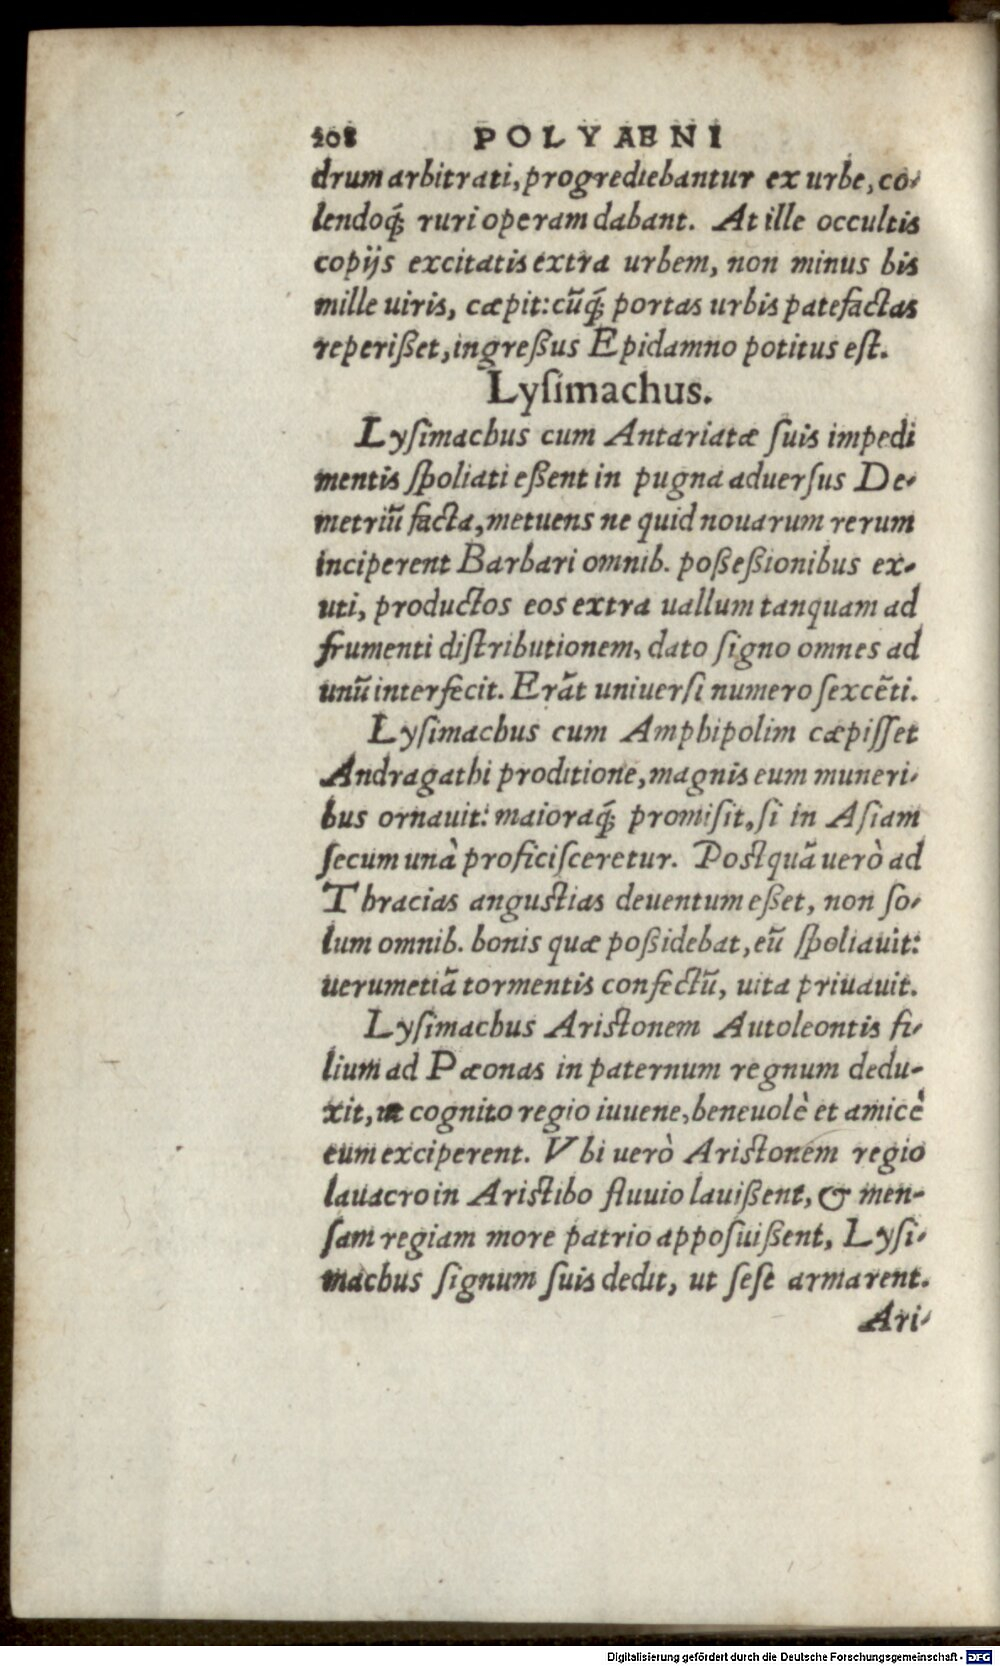 208 POLYAENI
drum arbitrati, progrediebantur ex urbe, co-
lendoq́; ruri operam dabant. At ille occultis
copijs excitatis extra urbem, non minus bis
mille uiris, cæpit: cũq́; portas urbis patefactas
reperißet, ingreßus Epidamno potitus est.
Lyſimachus.
Lyſimachus cum Antariatæ ſuis impedi
mentis ſpoliati eßent in pugna aduerſus De-
metriũ facta, metuens ne quid nouarum rerum
inciperent Barbari omnib. poßeßionibus ex-
uti, productos eos extra uallum tanquam ad
frumenti diſtributionem, dato ſigno omnes ad
unũ interfecit. Erãt uniuerſi numero ſexcẽti.
Lyſimachus cum Amphipolim cæpiſſet
Andragathi proditione, magnis eum muneri-
bus ornauit: maioraq́; promiſit, ſi in Aſiam
ſecum unà proficiſceretur. Postquã uerò ad
Thracias angustias deuentum eßet, non ſo-
lum omnib. bonis quæ poßidebat, eũ ſpoliauit:
uerumetiã tormentis confectũ, uita priuauit.
Lyſimachus Aristonem Autoleontis fi-
lium ad Pæonas in paternum regnum dedu-
xit, ut cognito regio iuuene, beneuolè et amicè
eum exciperent. Vbi uerò Aristonem regio
lauacro in Aristibo fluuio lauißent, & men-
ſam regiam more patrio appoſuißent, Lyſi-
machus ſignum ſuis dedit, ut ſeſe armarent.
Ari-
Digitalisierung gefördert durch die Deutsche Forschungsgemeinschaft - DFG